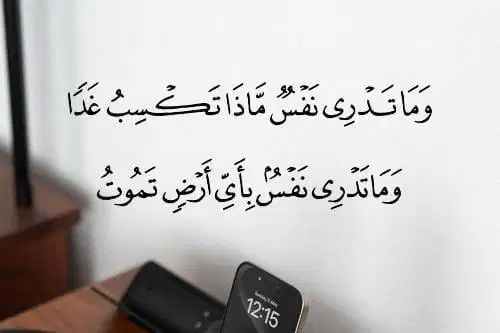 وَمَا تَدْرِى نَفْسٌ مَّاذَا تَكْسِبُ غَدًا
وَمَا تَدْرِى نَفْسٌۢ بِأَىِّ أَرْضٍ تَمُوتُ
12:15